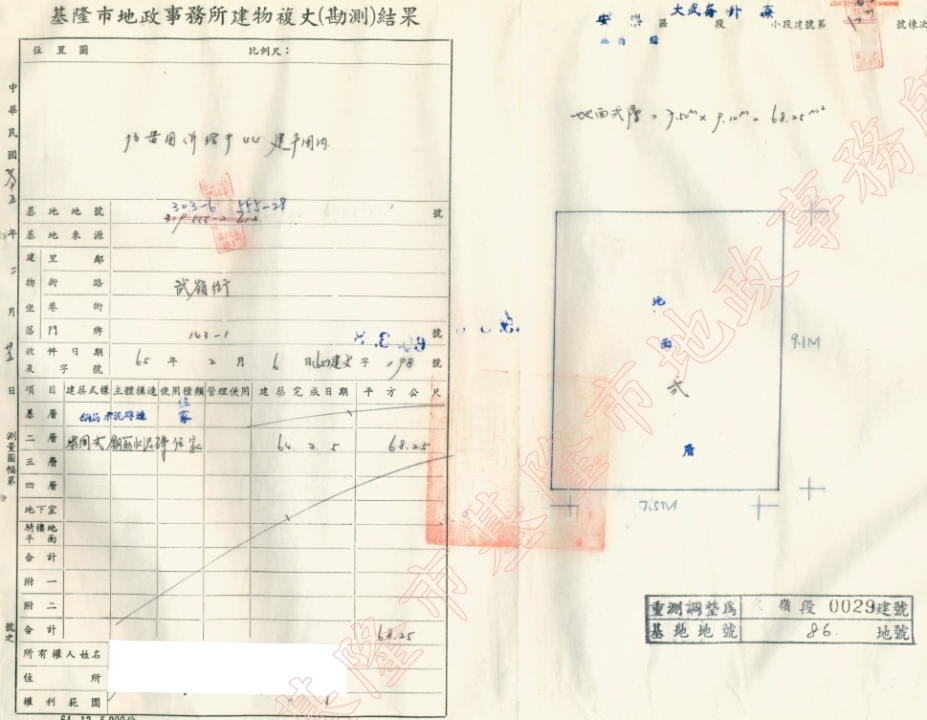 基隆市地政事務所建物複丈(勘測)結果
位置圖 比例尺：
基地地號 303-6 555-28 號
基地來源
建 里鄰
物 街路 武嶺街
坐 巷街
落 門牌 143-1 號
收件日期 65年2月6日
及字號 (65)建丈字 198 號
項目 建築式樣 主體構造 使用種類 管理使用 建築完成日期 平方公尺
基層 鋼筋水泥磚造 住家
二層 鋼筋水泥磚 住家 64.2.5 68.25
三層
四層
地下室
騎樓地平面
合計
附一
附二
合計 68.25
所有權人姓名
住所
權利範圍 1
64.12.5,000份
中華民國 年 二 月 日
測量圖幅第 號之
安樂區 大武崙 段 小段建號第 號棟次
地面弍層 = 7.50M × 9.10M = 68.25M²
地面弍層
9.1M
7.5M
重測調整為 嶺段 0029建號
基地地號 86. 地號
基隆市地政事務所